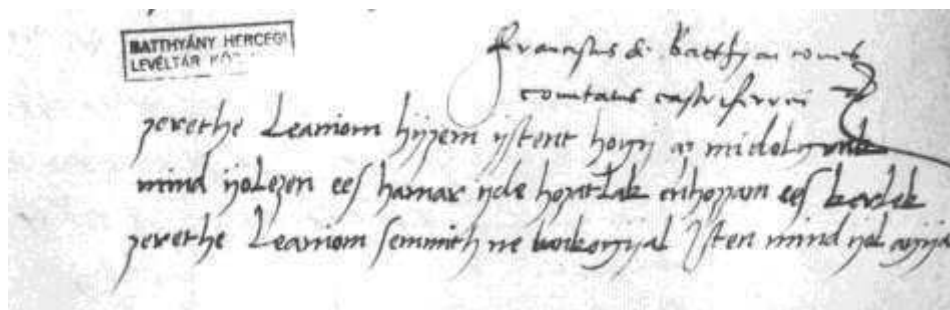 BATTHYÁNY HERCEGI
LEVÉLTÁR
Franciscus de Batthyan comes
comitatus castriferrei
zerethe Leaniom hÿzem ÿstent hogÿ az mi dolgonk
mind ÿol lezen ees hamar ide hozatlak enhozzam ees kerlek
zerethe Leaniom semmith ne bankogÿal ÿsten mind ÿol